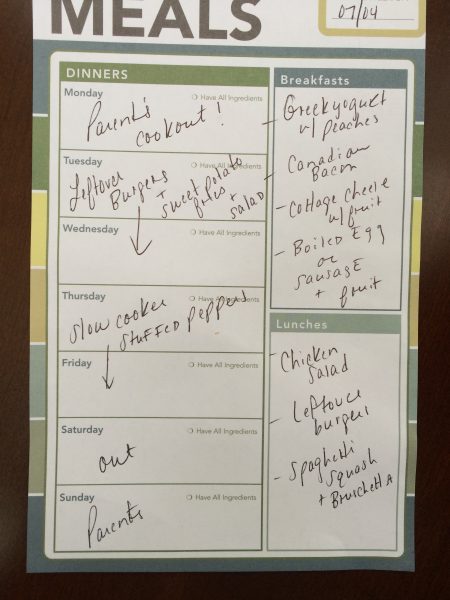 MEALS
07/04
DINNERS
Monday
Have All Ingredients
Parent's
cookout!
Tuesday
Have All Ingredients
Leftover
Burgers
+ sweet potato
fries + salad
Wednesday
Have All Ingredients
Thursday
Have All Ingredients
Slow cooker
stuffed peppers
Friday
Have All Ingredients
Saturday
Have All Ingredients
out
Sunday
Have All Ingredients
Parents
Breakfasts
- Greek yogurt
w/ peaches
- Canadian
Bacon
- Cottage cheese
w/ fruit
- Boiled Egg
or
sausage
+ fruit
Lunches
- Chicken
salad
- Leftover
burgers
- Spaghetti
Squash
+ Bruschetta